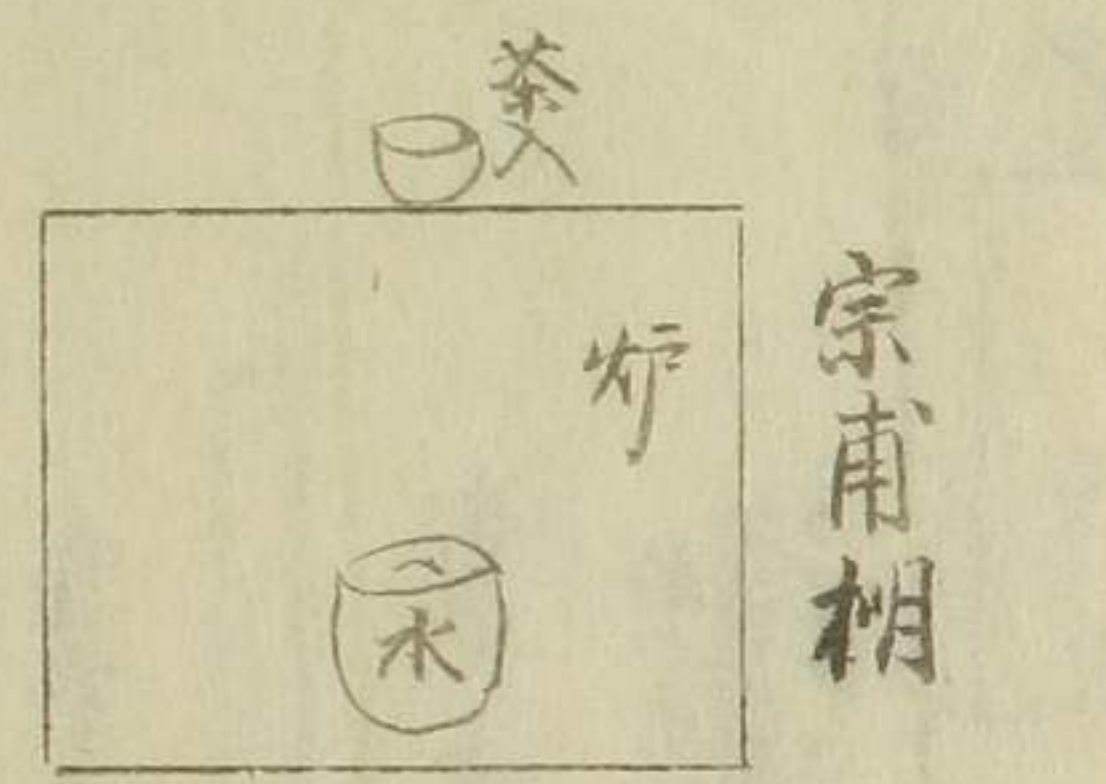 宗甫棚
茶入
炉
水